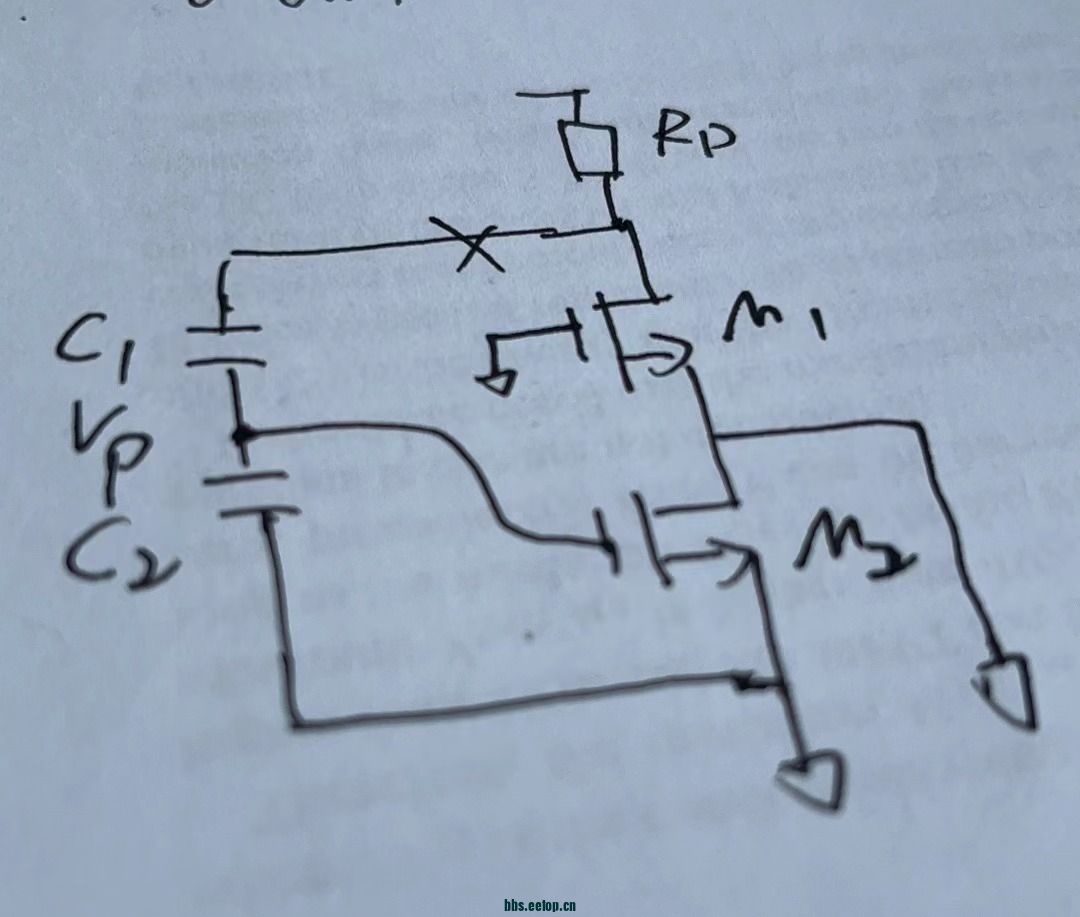 RD
M1
C1
VP
C2
M2
bbs.eetop.cn